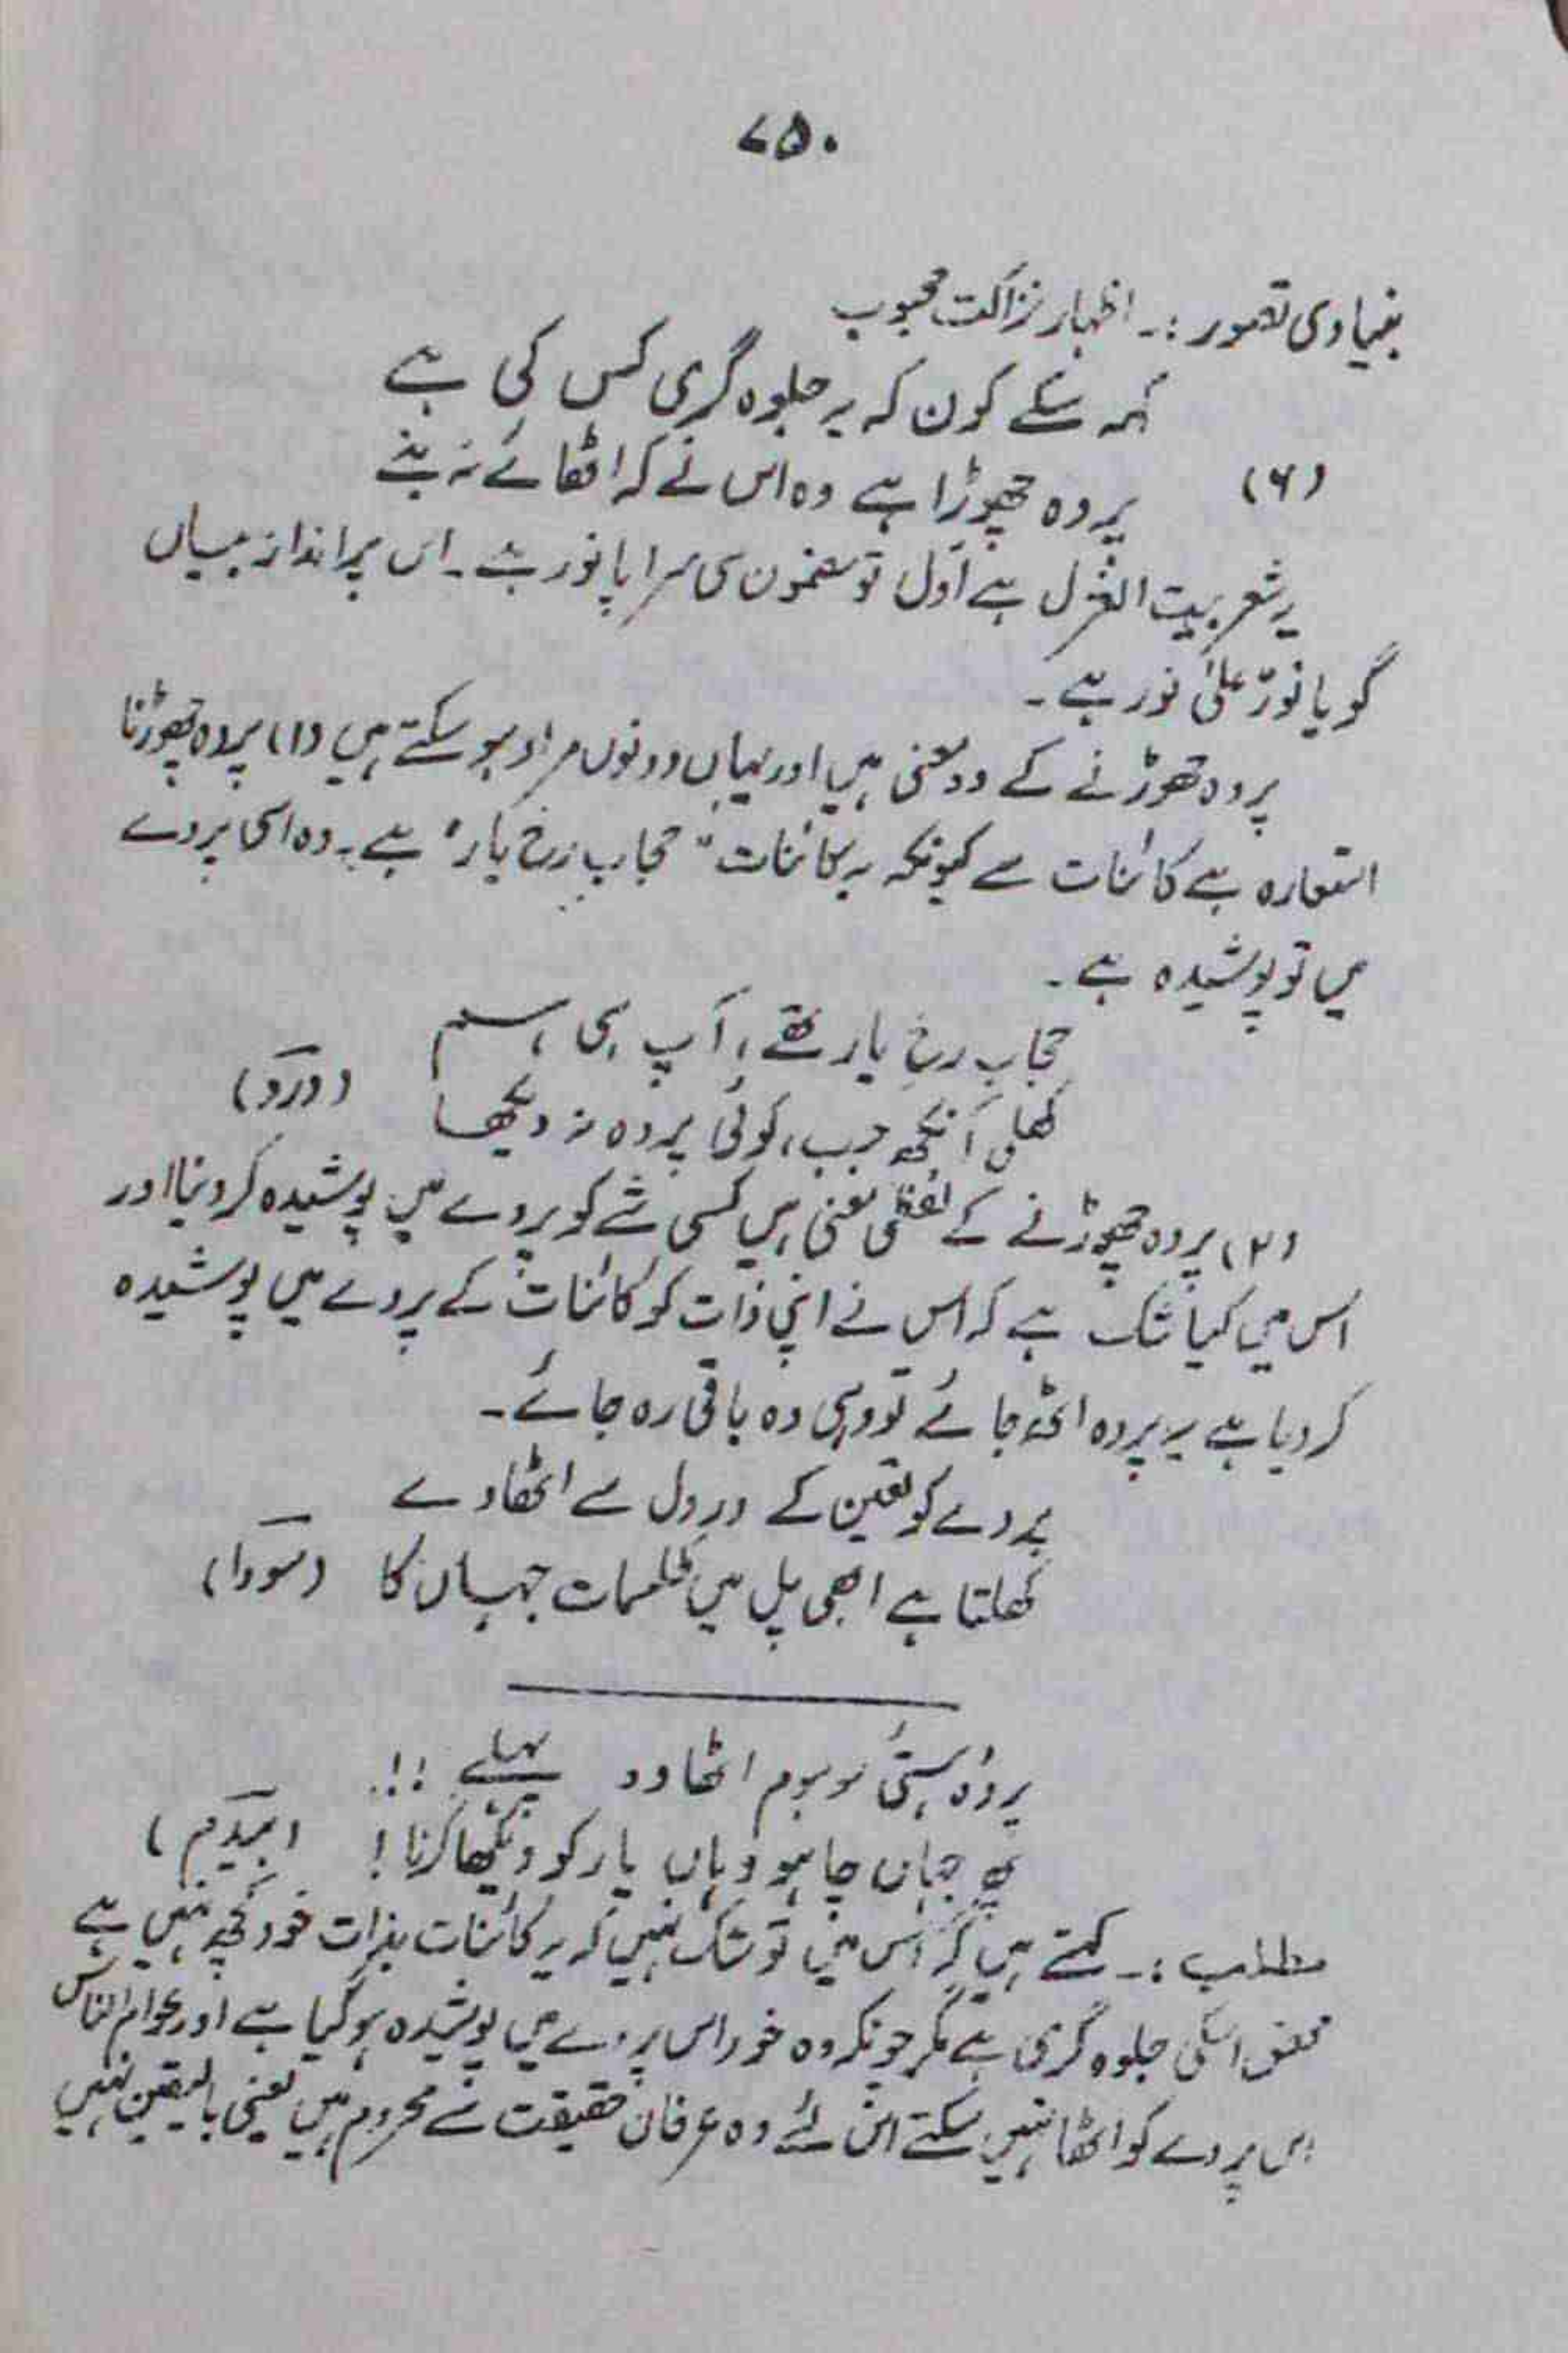 ۷۵۰
بنیادی تصور :۔ اظہار نزاکت محبوب
کہہ سکے کون کہ یہ جلوہ گری کس کی ہے
(۶) پردہ چھوڑا ہے وہ اس نے کہ اٹھائے نہ بنے
یہ شعر بیت الغزل ہے اوّل تو مضمون ہی سراپا نور ہے۔ اس پر انداز بیاں
گویا نورٌ علیٰ نور ہے۔
پردہ چھوڑنے کے دو معنی ہیں اور یہاں دونوں مراد ہو سکتے ہیں (۱) پردہ چھوڑنا
استعارہ ہے کائنات سے کیونکہ یہ کائنات "حجاب رخ یار" ہے۔ وہ اسی پردے
میں تو پوشیدہ ہے۔
حجابِ رخِ یار تھے، آپ ہی ہم
کھلی آنکھ جب، کوئی پردہ نہ دیکھا (درد)
(۲) پردہ چھوڑنے کے لفظی معنی ہیں کسی شے کو پردے میں پوشیدہ کر دینا اور
اس میں کیا شک ہے کہ اس نے اپنی ذات کو کائنات کے پردے میں پوشیدہ
کر دیا ہے یہ پردہ اٹھ جائے تو وہی وہ باقی رہ جائے۔
پردے کو تعین کے درِ دل سے اٹھا دے
کھلتا ہے ابھی پل میں طلسمات جہاں کا (سودا)
پردۂ ہستیٔ موہوم اٹھا دو پہلے !!.
پھر جہاں چاہو وہاں یار کو دیکھا کرنا ! (بیدم)
مطلب :۔ کہتے ہیں کہ اس میں تو شک نہیں کہ یہ کائنات بذات خود کچھ نہیں ہے
محض اسکی جلوہ گری ہے مگر چونکہ وہ خود اس پردے میں پوشیدہ ہو گیا ہے اور عوام الناس
اس پردے کو اٹھا نہیں سکتے اس لئے وہ عرفان حقیقت سے محروم ہیں یعنی بالیقین نہیں